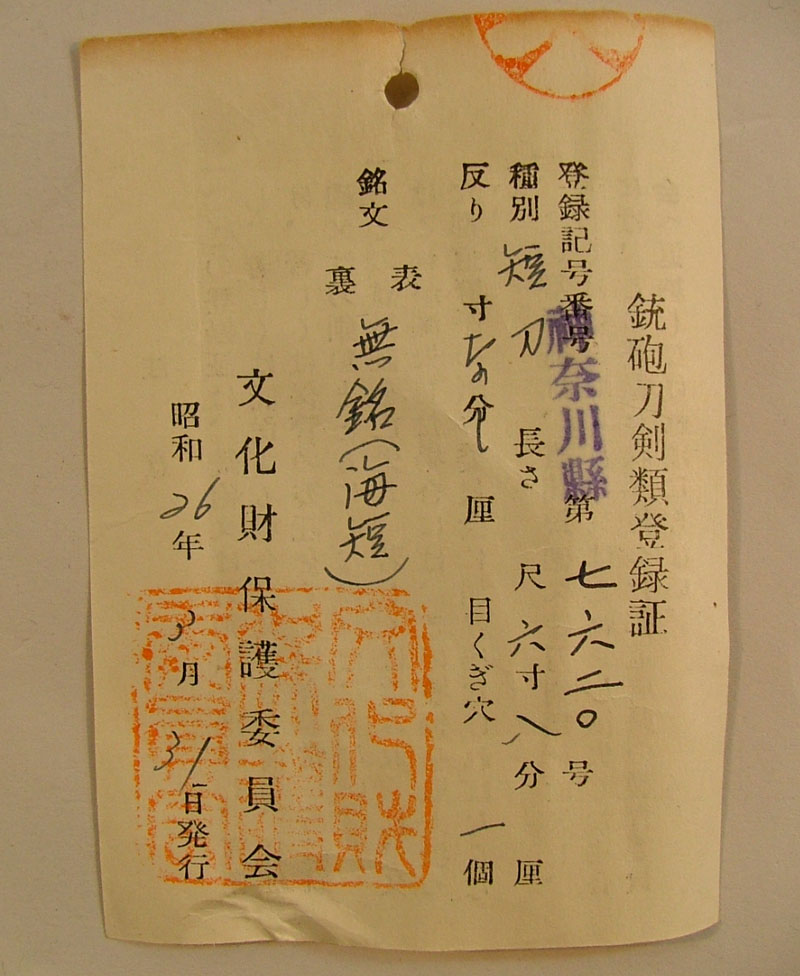 銃砲刀剣類登録証
登録記号番号 神奈川縣 第七六二〇号
種別 短刀 長さ 尺六寸八分 厘
反り 寸 分 厘 目くぎ穴 一個
銘文 表 裏 無銘(海短)
文化財保護委員会
昭和26年3月31日発行